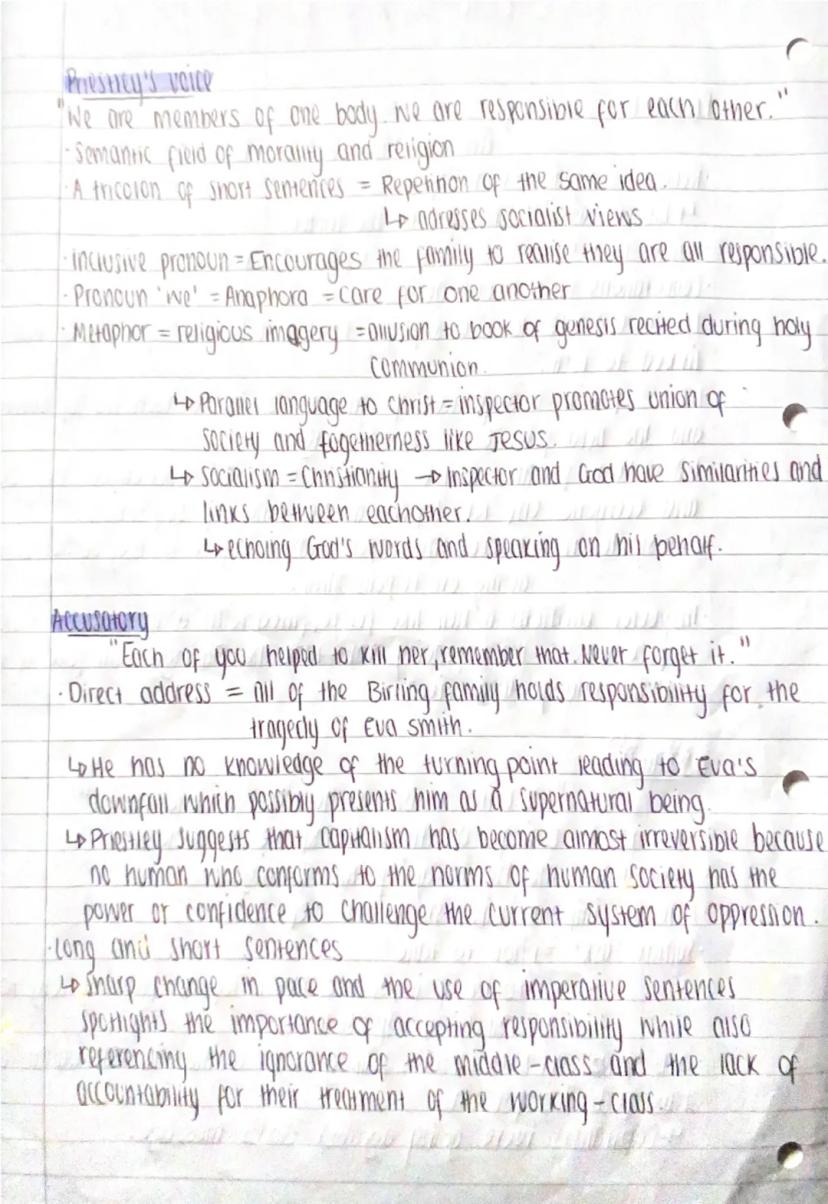 Priestley's voice
"We are members of one body. We are responsible for each other."
· Semantic field of morality and religion
· A tricolon of short sentences = Repetition of the same idea.
↳ adresses socialist views
· Inclusive pronoun = Encourages the family to realise they are all responsible.
· Pronoun 'we' = Anaphora = care for one another
· Metaphor = religious imagery = allusion to book of genesis recited during holy
communion.
↳ Parallel language to Christ = inspector promotes union of
society and togetherness like JESUS.
↳ Socialism = Christianity → Inspector and God have similarities and
links between eachother.
↳ echoing God's words and speaking on his behalf.
Accusatory
"Each of you helped to kill her, remember that. Never forget it."
· Direct address = all of the Birling family holds responsibility for the
tragedy of Eva Smith.
↳ He has no knowledge of the turning point leading to Eva's
downfall which possibly presents him as a supernatural being.
↳ Priestley suggests that capitalism has become almost irreversible because
no human who conforms to the norms of human society has the
power or confidence to challenge the current system of oppression.
· Long and short sentences
↳ Sharp change in pace and the use of imperative sentences
spotlights the importance of accepting responsibility while also
referencing the ignorance of the middle-class and the lack of
accountability for their treatment of the working-class.